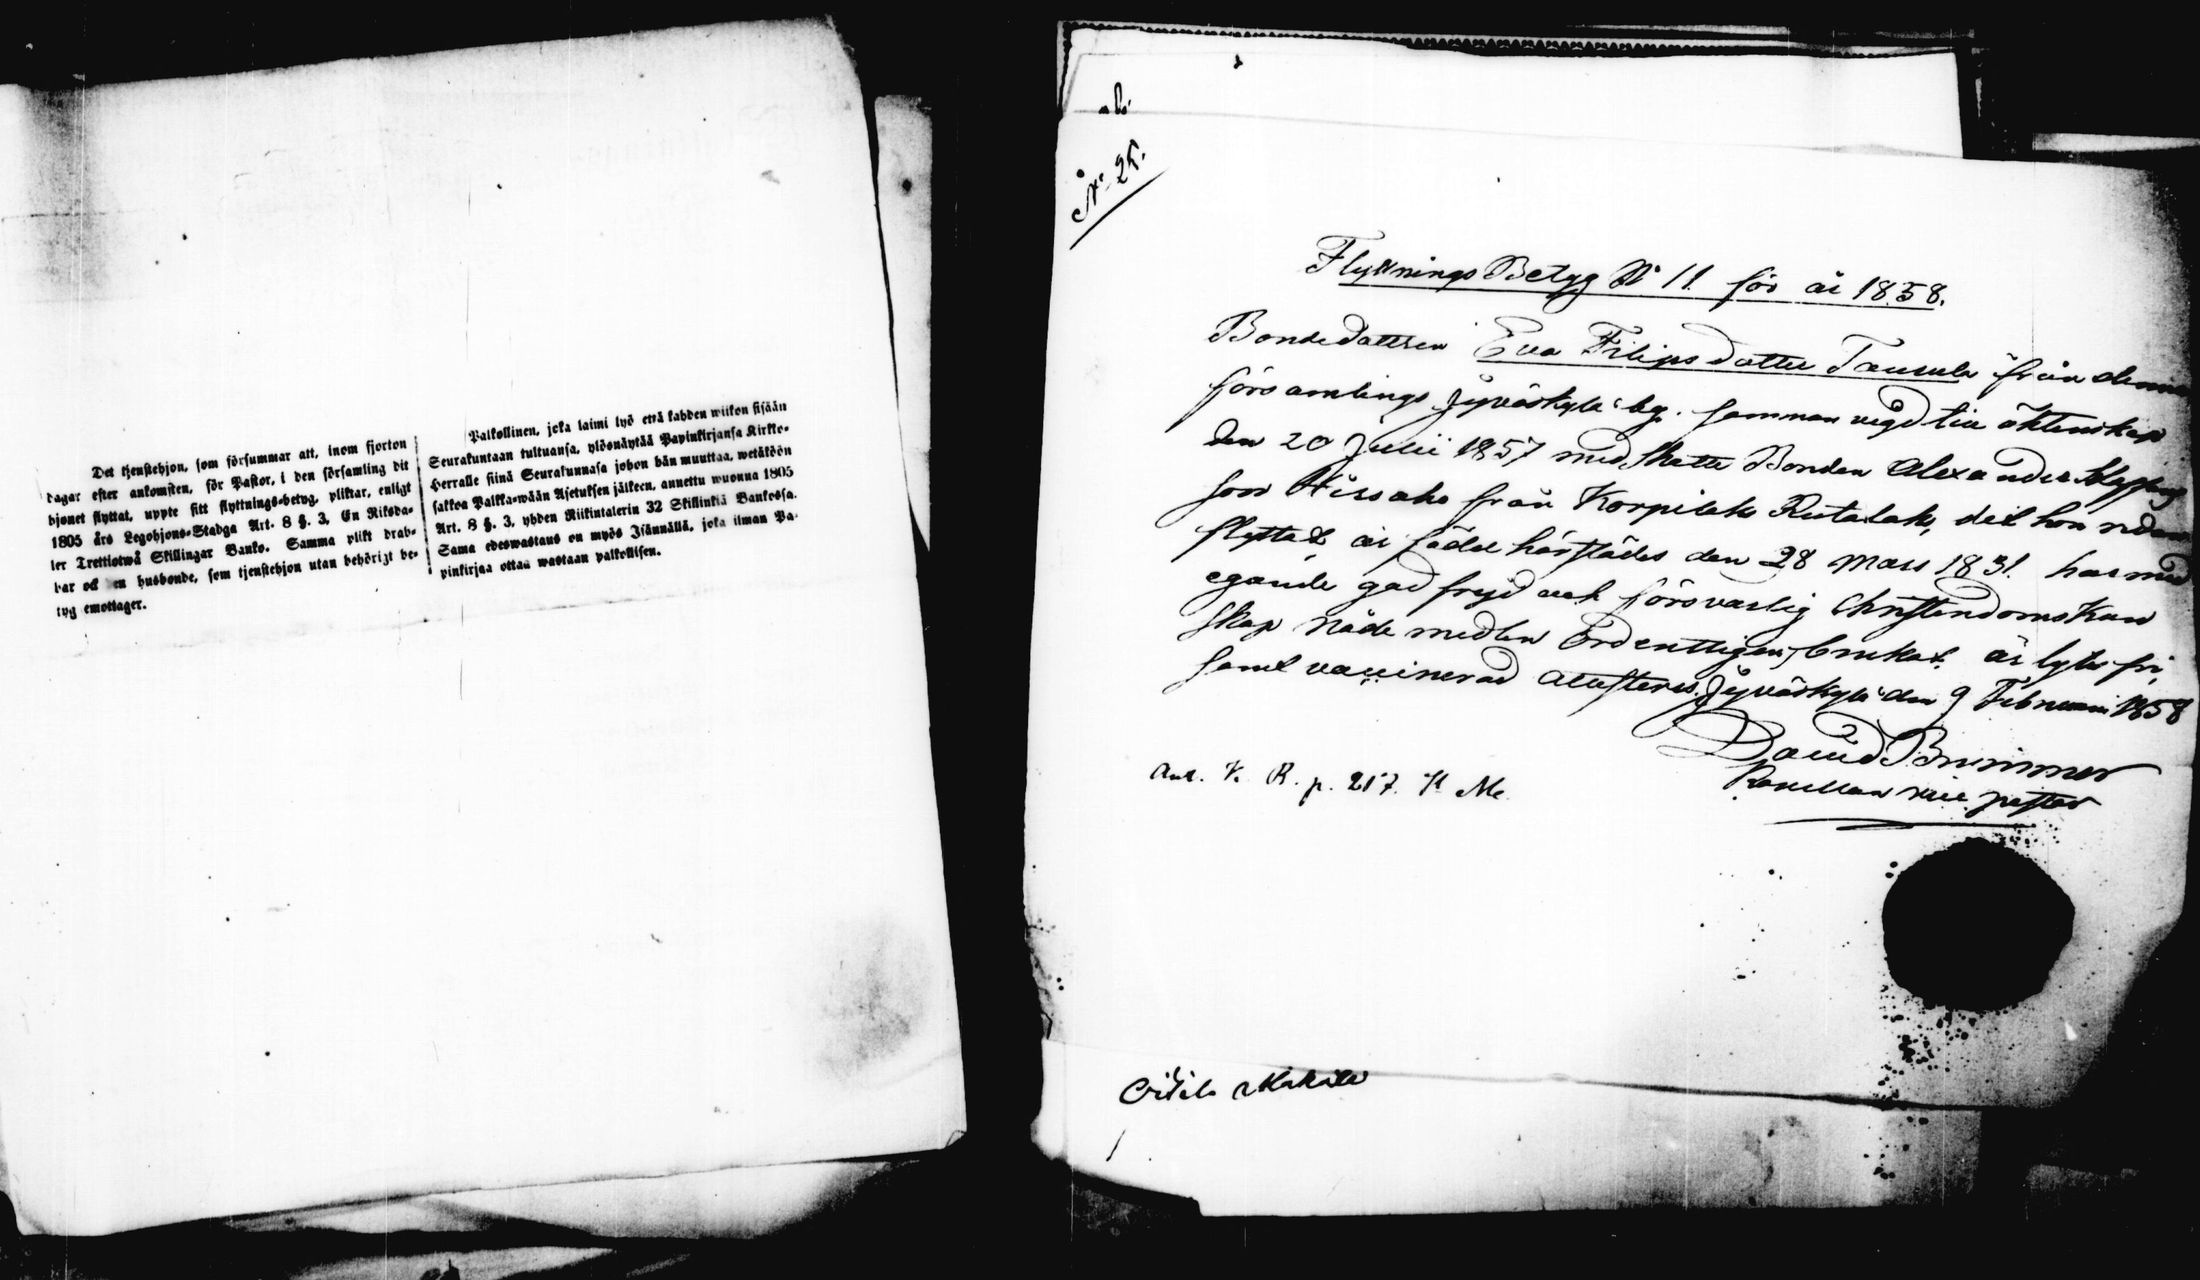 Det tjenstehjon, som försummar att, inom fjorton
dagar efter ankomsten, för Pastor, i den församling dit
hjonet flyttat, uppte sitt flyttnings-betyg, pliktar, enligt
1805 års Legohjons-Stadga Art. 8 §. 3, En Riksda-
ler Trettiotwå Skillingar Banko. Samma plikt drab-
bar ock en husbonde, som tjenstehjon utan behörigt be-
tyg emottager.
Palkollinen, joka laimi lyö että kahden wiikon sisään
Seurakuntaan tultuansa, ylösnäytää Papinkirjansa Kirkko-
Herralle siinä Seurakunnasa johon hän muuttaa, wetäköön
sakkoa Palkka-wään Asetuksen jälkeen, annettu wuonna 1805
Art. 8 §. 3, yhden Riikintalerin 32 Skillinkiä Bankossa.
Sama edeswastaus on myös Isännällä, joka ilman Pa-
pinkirjaa ottaa wastaan palkollisen.
No 25.
Flyttnings Betyg No 11. för år 1858.
Bondedottren Eva Filipsdotter från denna
församlings Jyväskylä by. sammanvigd till äktenskap
den 20 Julii 1857 med Skatte Bonden Alexander
son från Korpilaks Rutalaks, dit hon nu
flyttat är född härstädes den 28 Mars 1831. har med
egande god frejd och försvarlig Christendoms Kun
skap Nådemedlen Ordentligen brukat är lytes fri,
samt vaccinerad attesteras. Jyväskylä den 9 Februarii 1858
David Brunner
Kapellan vice pastor
Ant. K. B. p. 217.